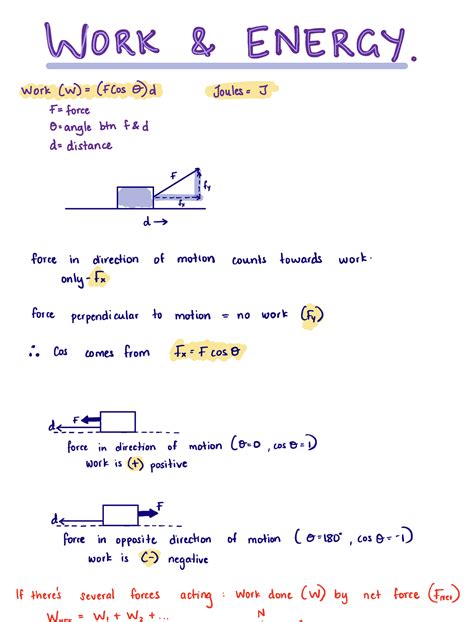 WORK & ENERGY.
Work (W) = (F cos θ)d
Joules = J
F = force
θ = angle btn f & d
d = distance
F
fy
fx
d →
force in direction of motion counts towards work.
only - Fx
force perpendicular to motion = no work (Fy)
∴ Cos comes from Fx = F cos θ
F
d
force in direction of motion (θ=0, cos θ = 1)
work is (+) positive
F
d
force in opposite direction of motion (θ=180°, cos θ = -1)
work is (-) negative
If there's several forces acting : Work done (W) by net force (Fnet)
WNET = W1 + W2 + ...
N